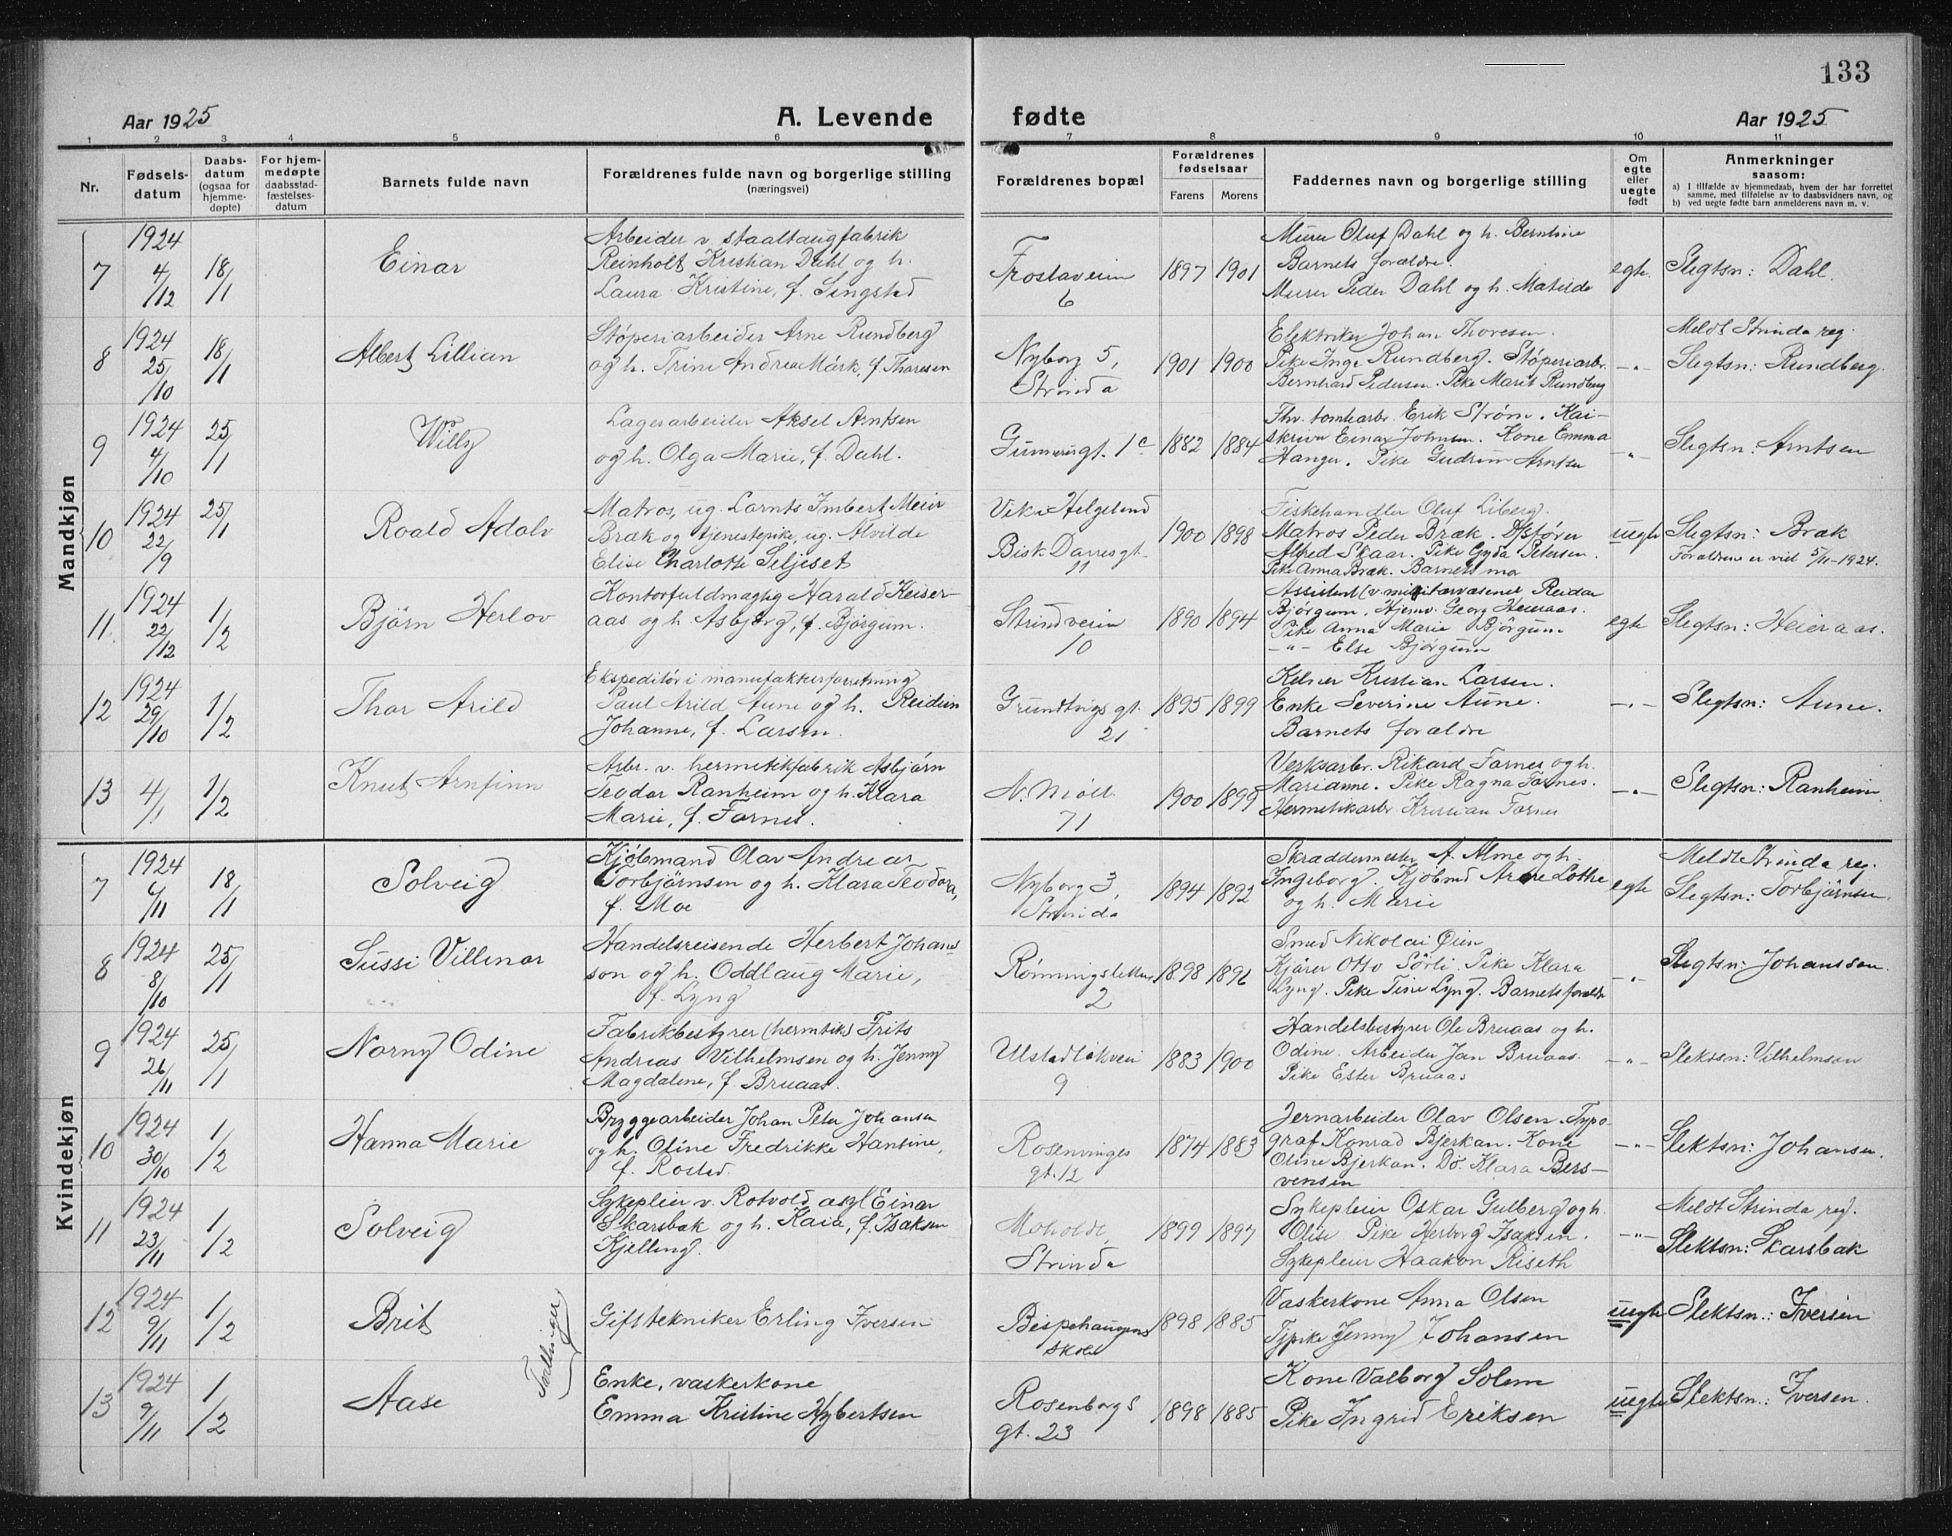 133
Aar 1925 A. Levende fødte Aar 1925
1 2 3 4 5 6 7 8 9 10 11
Nr.
Fødsels-
datum
Daabs-
datum
(ogsaa for
hjemme-
døpte)
For hjem-
medøpte
daabsstad-
fæstelses-
datum
Barnets fulde navn
Forældrenes fulde navn og borgerlige stilling
(næringsvei)
Forældrenes bopæl
Forældrenes
fødselsaar
Farens Morens
Faddernes navn og borgerlige stilling
Om
egte
eller
uegte
født
Anmerkninger
saasom:
a) I tilfælde av hjemmedaab, hvem der har forrettet
samme, med tilføielse av to daabsvidners navn, og
b) ved uegte fødte barn anmelderens navn m. v.
Mandkjøn
7 1924 4/12 18/1 Einar
Arbeider v. staaltaugfabrik
Reinholt Kristian Dahl og h.
Laura Kristine, f. Singstad
Frostaveien
6
1897 1901
Murer Oluf Dahl og h. Bernhine
Barnets forældre.
Murer Peder Dahl og h. Matilde
egte
Slegtsn: Dahl.
8 1924 25/10 18/1 Albert Lillian
Støperiarbeider Arne Rundberg
og h. Trine Andrea Mark, f. Thoresen
Nyborg 5,
Strinda
1901 1900
Elektriker Johan Thoresen.
Pike Inga Rundberg. Støperiarb.
Bernhard Pedersen. Pike Marit Rundberg
-"-
Meldt Strinda reg.
Slegtsn: Rundberg.
9 1924 4/10 25/1 Willy
Lagerarbeider Aksel Arntsen
og h. Olga Marie, f. Dahl.
Gunnerusgt. 1c
1882 1884
Thv. tomtearb. Erik Strøm. Kai-
skriver Einar Johnsen. Kone Emma
Hanger. Pike Gudrun Arntsen
-"-
Slegtsn: Arntsen
10 1924 22/9 25/1 Roald Adolv
Matros, ug. Larnts Imbert Meier
Bræk og tjenestepike, ug. Alvilde
Elise Charlotte Seljeset
Vik i Helgeland
Bisk. Darresgt.
11
1900 1898
Fiskehandler Oluf Liberg.
Matros Peder Bræk.
Alfred Skaar. Pike Gyda Petersen.
Pike Anna Bræk. Barnets mo
uegte
Slegtsn: Bræk
Forældrene er viet 5/11-1924.
11 1924 22/12 1/2 Bjørn Herlov
Kontorfuldmægtig Harald Heier-
aas og h. Asbjørg, f. Bjørgum.
Strindveien
10
1890 1894
Assistent v. militærvæsenet Reidar
Bjørgum. Hjemv. Georg Heieraas.
Pike Anna Marie Bjørgum
-"- Else Bjørgum
egte
Slegtsn: Heieraas.
12 1924 29/10 1/2 Thor Arild
Ekspeditør i manufakturforretning
Paul Arild Aune og h. Reidun
Johanne, f. Larsen.
Grundtvigs gt.
21
1895 1899
Kelner Kristian Larsen.
Enke Severine Aune.
Barnets forældre
-"-
Slegtsn: Aune.
13 4/1 1/2 Knut Arnfinn
Arbr. v. hermetikfabrik Asbjørn
Teodor Ranheim og h. Klara
Marie, f. Fornes.
N. Møll.
71
1900 1899
Verksarbr. Rikard Fornes og h.
Marianne. Pike Ragna Fornes.
Hermetikarbr. Kristian Fornes
-"-
Slegtsn: Ranheim.
Kvindekjøn
7 1924 6/11 18/1 Solveig
Kjøbmand Olav Andreas
Torbjørnsen og h. Klara Teodora,
f. Moe
Nyborg 3,
Strinda
1894 1892
Skræddermester A. Alme og h.
Ingeborg. Kjøbmd Arne Lothe
og h. Marie
egte
Meldt Strinda reg.
Slegtsn: Torbjørnsen.
8 1924 8/10 25/1 Sussi Villenor
Handelsreisende Herbert Johans-
son og h. Oddlaug Marie,
f. Lyng
Rønningsletten
2
1898 1896
Smed Nikolai Øien
Kjører Otto Sørli. Pike Klara
Lyng. Pike Tine Lyng. Barnets foræld
-"-
Slegtsn: Johansson.
9 1924 26/11 25/1 Norny Odine
Fabrikbestyrer (hermtik) Frits
Andreas Vilhelmsen og h. Jenny
Magdalene, f. Bruaas.
Ulstadløkvei
9
1883 1900
Handelsbestyrer Ole Bruaas og h.
Odine. Arbeider Jan Bruaas.
Pike Ester Bruaas
-"-
Slektsn: Vilhelmsen
10 1924 30/10 1/2 Hanna Marie
Bryggearbeider Johan Peter Johansen
og h. Oline Fredrikke Hansine,
f. Rostad.
Rosenvinges
gt. 12
1874 1883
Jernarbeider Olav Olsen. Typo-
graf Konrad Bjerkan. Kone
Oline Bjerkan. Do. Klara Bers-
vensen
-"-
Slektsn: Johansen.
11 1924 23/11 1/2 Solveig
Sykepleier v. Rotvold asyl Einar
Skarsbak og h. Kaia, f. Isaksen
Kjelling.
Moholdt,
Strinda
1899 1897
Sykepleier Oskar Gulberg og h.
Olise. Pike Herborg Isaksen.
Sykepleier Haakon Riseth
-"-
Meldt Strinda reg.
Slektsn: Skarsbak
12 1924 9/11 1/2 Brit
Tvillinger
Giftstekniker Erling Iversen
Bispehaugens
skole
1898 1885
Vaskerkone Anna Olsen
Tjpike Jenny Johansen
uegte
Slektsn: Iversen
13 1924 9/11 1/2 Aase
Enke, vaskerkone
Emma Kristine Hybertsen
Rosenborgs
gt. 23
1898 1885
Kone Valborg Solem
Pike Ingrid Eriksen
uegte
Slektsn: Iversen.